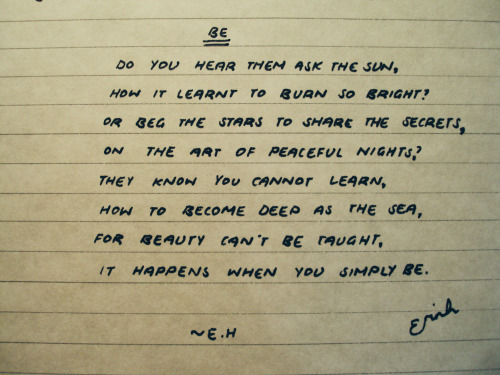 BE
DO YOU HEAR THEM ASK THE SUN,
HOW IT LEARNT TO BURN SO BRIGHT?
OR BEG THE STARS TO SHARE THE SECRETS,
ON THE ART OF PEACEFUL NIGHTS?
THEY KNOW YOU CANNOT LEARN,
HOW TO BECOME DEEP AS THE SEA,
FOR BEAUTY CAN'T BE TAUGHT,
IT HAPPENS WHEN YOU SIMPLY BE.
~E.H